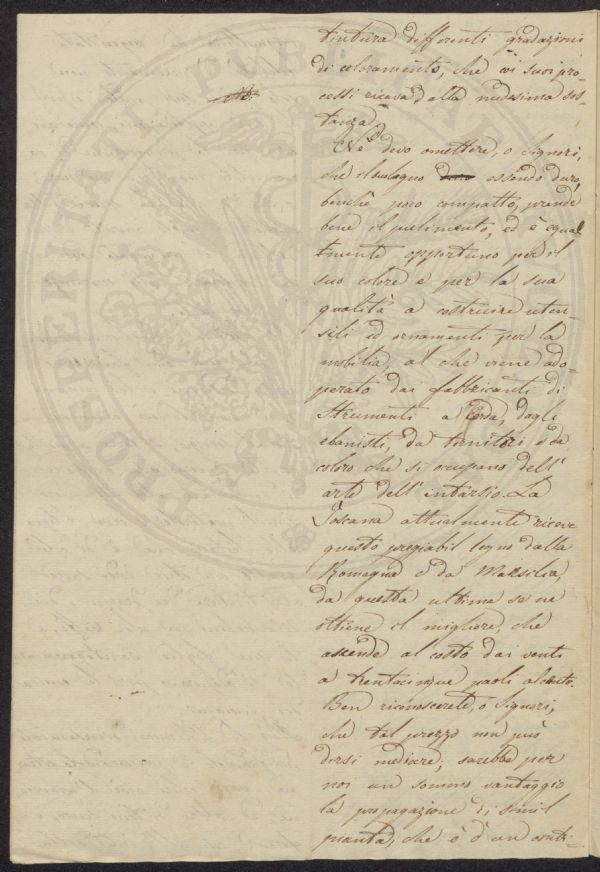 tintura differenti gradazioni
di coloramento, che coi suoi pro-
cessi ricava dalla medesima sos-
tanza.
Nè devo omettere, o Signori,
che il bulogno essendo duro,
benchè poco compatto, prende
bene il pulimento, ed è equal-
mente opportuno per il
suo colore e per la sua
qualità a costruire uten-
sili ed ornamenti per la
mobilia, al che viene ado-
perato dai fabbricanti di
Strumenti a Corda, dagli
ebanisti, da tornitori e da
coloro che si occupano dell'
arte dell' intarsio. La
Toscana attualmente riceve
questo pregiabil legno dalla
Romagna e da Marsilia,
da questa ultima se ne
ottiene il migliore, che
ascende al costo dai venti
a trentacinque paoli al cento.
Ben riconoscerete, o Signori,
che tal prezzo non può
dirsi mediocre; sarebbe per
noi un sommo vantaggio
la propagazione di simil
pianta, che è d'un
PROSPERITATI PUBLICAE